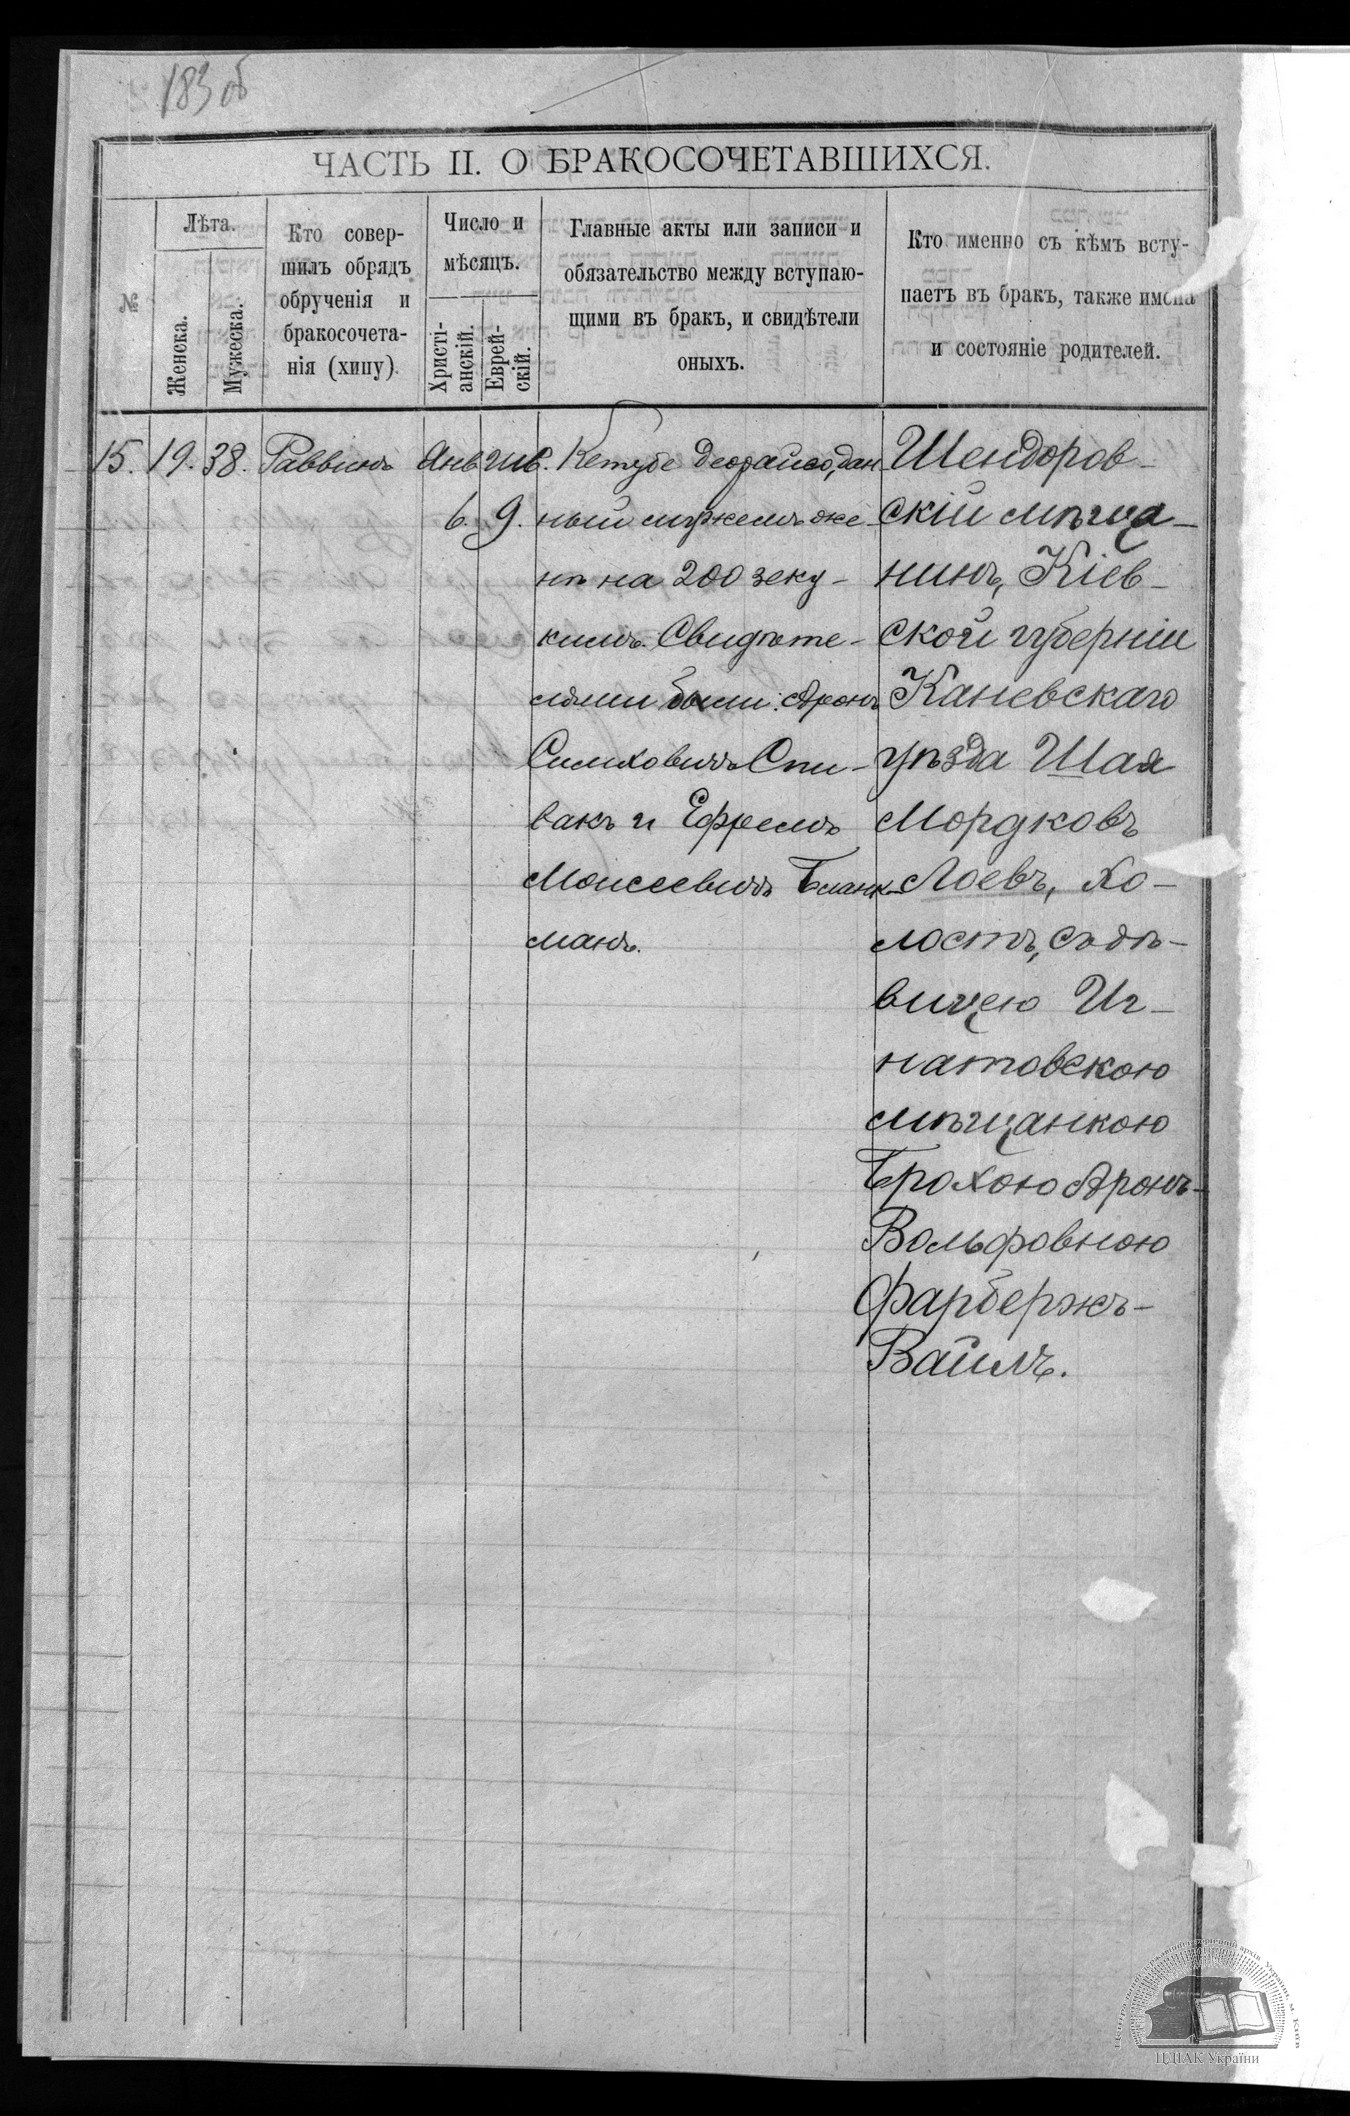 183 об
ЧАСТЬ II. О БРАКОСОЧЕТАВШИХСЯ.
№
Лѣта.
Женска.
Мужеска.
Кто совер-
шилъ обрядъ
обрученія и
бракосочета-
нія (хипу)
Число и
мѣсяцъ.
Христі-
анскій.
Еврей-
скій.
Главные акты или записи и
обязательство между вступаю-
щими въ бракъ, и свидѣтели
оныхъ.
Кто именно съ кѣмъ всту-
паетъ въ бракъ, также имена
и состояніе родителей.
15. 19. 38. Раввинъ
Янв
6.
Шв.
9.
Кетубе деорайсо, дан-
ный мужемъ же-
нѣ на 200 зеку-
кимъ. Свидѣте-
лями были: Аронъ
Симховичъ Спи-
вакъ и Ефремъ
Моисеевичъ Бланк-
манъ.
Шендоров-
скій мѣща-
нинъ, Кіев-
ской губерніи
Каневскаго
уѣзда Шая
Мордковъ
Лоевъ, хо-
лостъ, съ дѣ-
вицею Иг-
натовскою
мѣщанкою
Брохою Аронъ-
Вольфовною
Фарбержъ-
Вайлъ.
ЦДІАК України